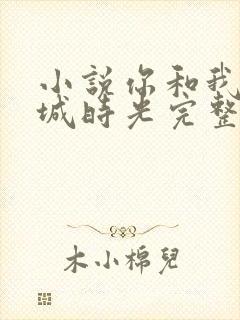 小説你和我
城時光完整
木小棉兒